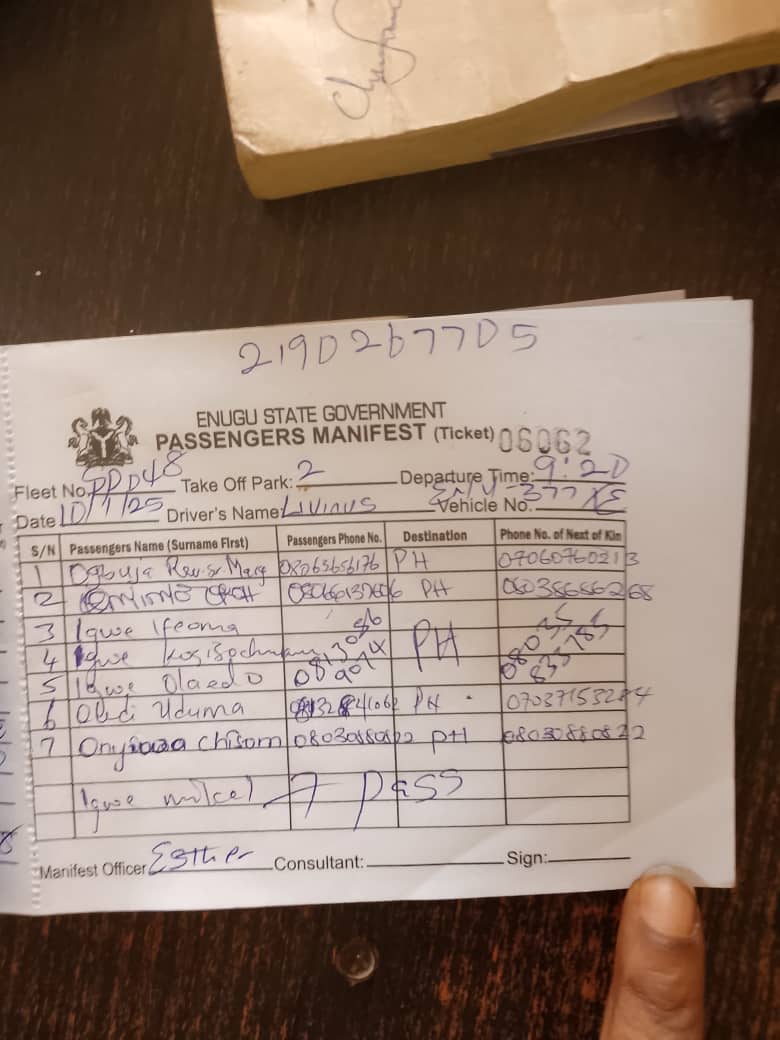 2190267705
ENUGU STATE GOVERNMENT
PASSENGERS MANIFEST (Ticket) 06062
Fleet No. PPD48 Take Off Park: 2 Departure Time: 9:20
Date 10/1/25 Driver's Name Livinus Vehicle No. 377 XE
S/N Passengers Name (Surname First) Passengers Phone No. Destination Phone No. of Next of Kin
1 Ogbuja Rev. Sr Mary 08065656176 PH 07060760213
2 PH 08038686268
3 Igwe Ifeoma
4 Igwe PH
5 Igwe Olaedo
6 Obdi Uduma PH 07037153284
7 Chisom 08030880822 PH 08030880822
Igwe 7 pass
Manifest Officer Esther Consultant: Sign: